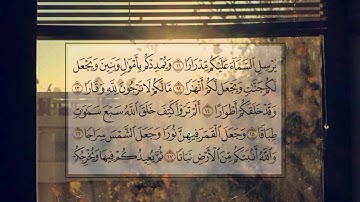 يُرْسِلِ السَّمَاءَ عَلَيْكُم مِّدْرَارًا ١١ وَيُمْدِدْكُم بِأَمْوَٰلٍ وَبَنِينَ وَيَجْعَل
لَّكُمْ جَنَّٰتٍ وَيَجْعَل لَّكُمْ أَنْهَٰرًا ١٢ مَّا لَكُمْ لَا تَرْجُونَ لِلَّهِ وَقَارًا ١٣
وَقَدْ خَلَقَكُمْ أَطْوَارًا ١٤ أَلَمْ تَرَوْا۟ كَيْفَ خَلَقَ ٱللَّهُ سَبْعَ سَمَٰوَٰتٍ
طِبَاقًا ١٥ وَجَعَلَ ٱلْقَمَرَ فِيهِنَّ نُورًا وَجَعَلَ ٱلشَّمْسَ سِرَاجًا ١٦
وَٱللَّهُ أَنۢبَتَكُم مِّنَ ٱلْأَرْضِ نَبَاتًا ١٧ ثُمَّ يُعِيدُكُمْ فِيهَا وَيُخْرِجُكُمْ